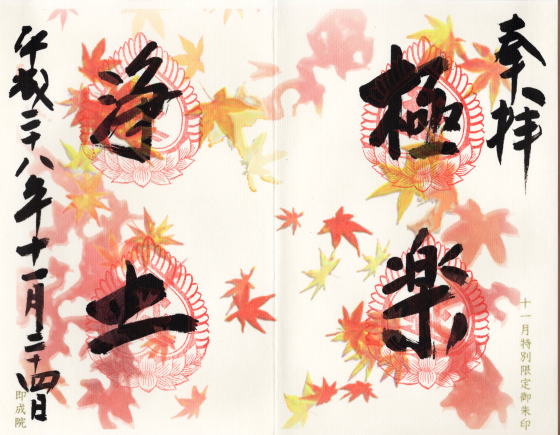 奉拝
極楽
十一月特別限定御朱印
浄土
平成二十八年十一月二十四日
即成院